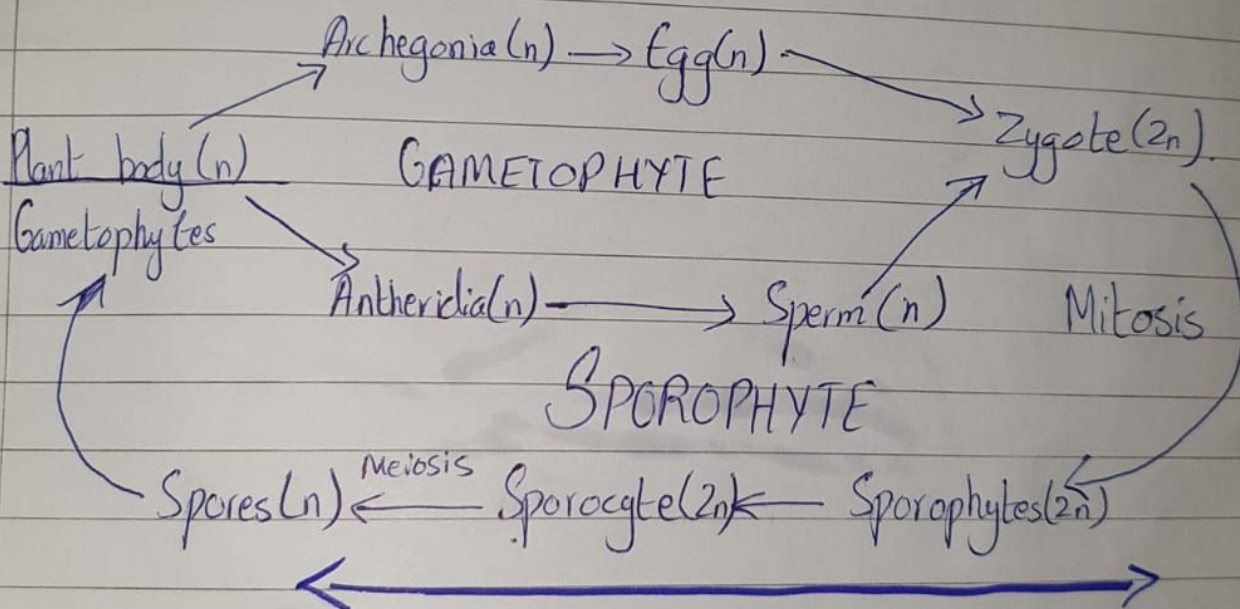 Archegonia(n) → Egg(n) → Zygote(2n).
Plant body(n) GAMETOPHYTE
Gametophytes
Antheridia(n) → Sperm(n) Mitosis
SPOROPHYTE
Meiosis
Spores(n) ← Sporocyte(2n) ← Sporophytes(2n)